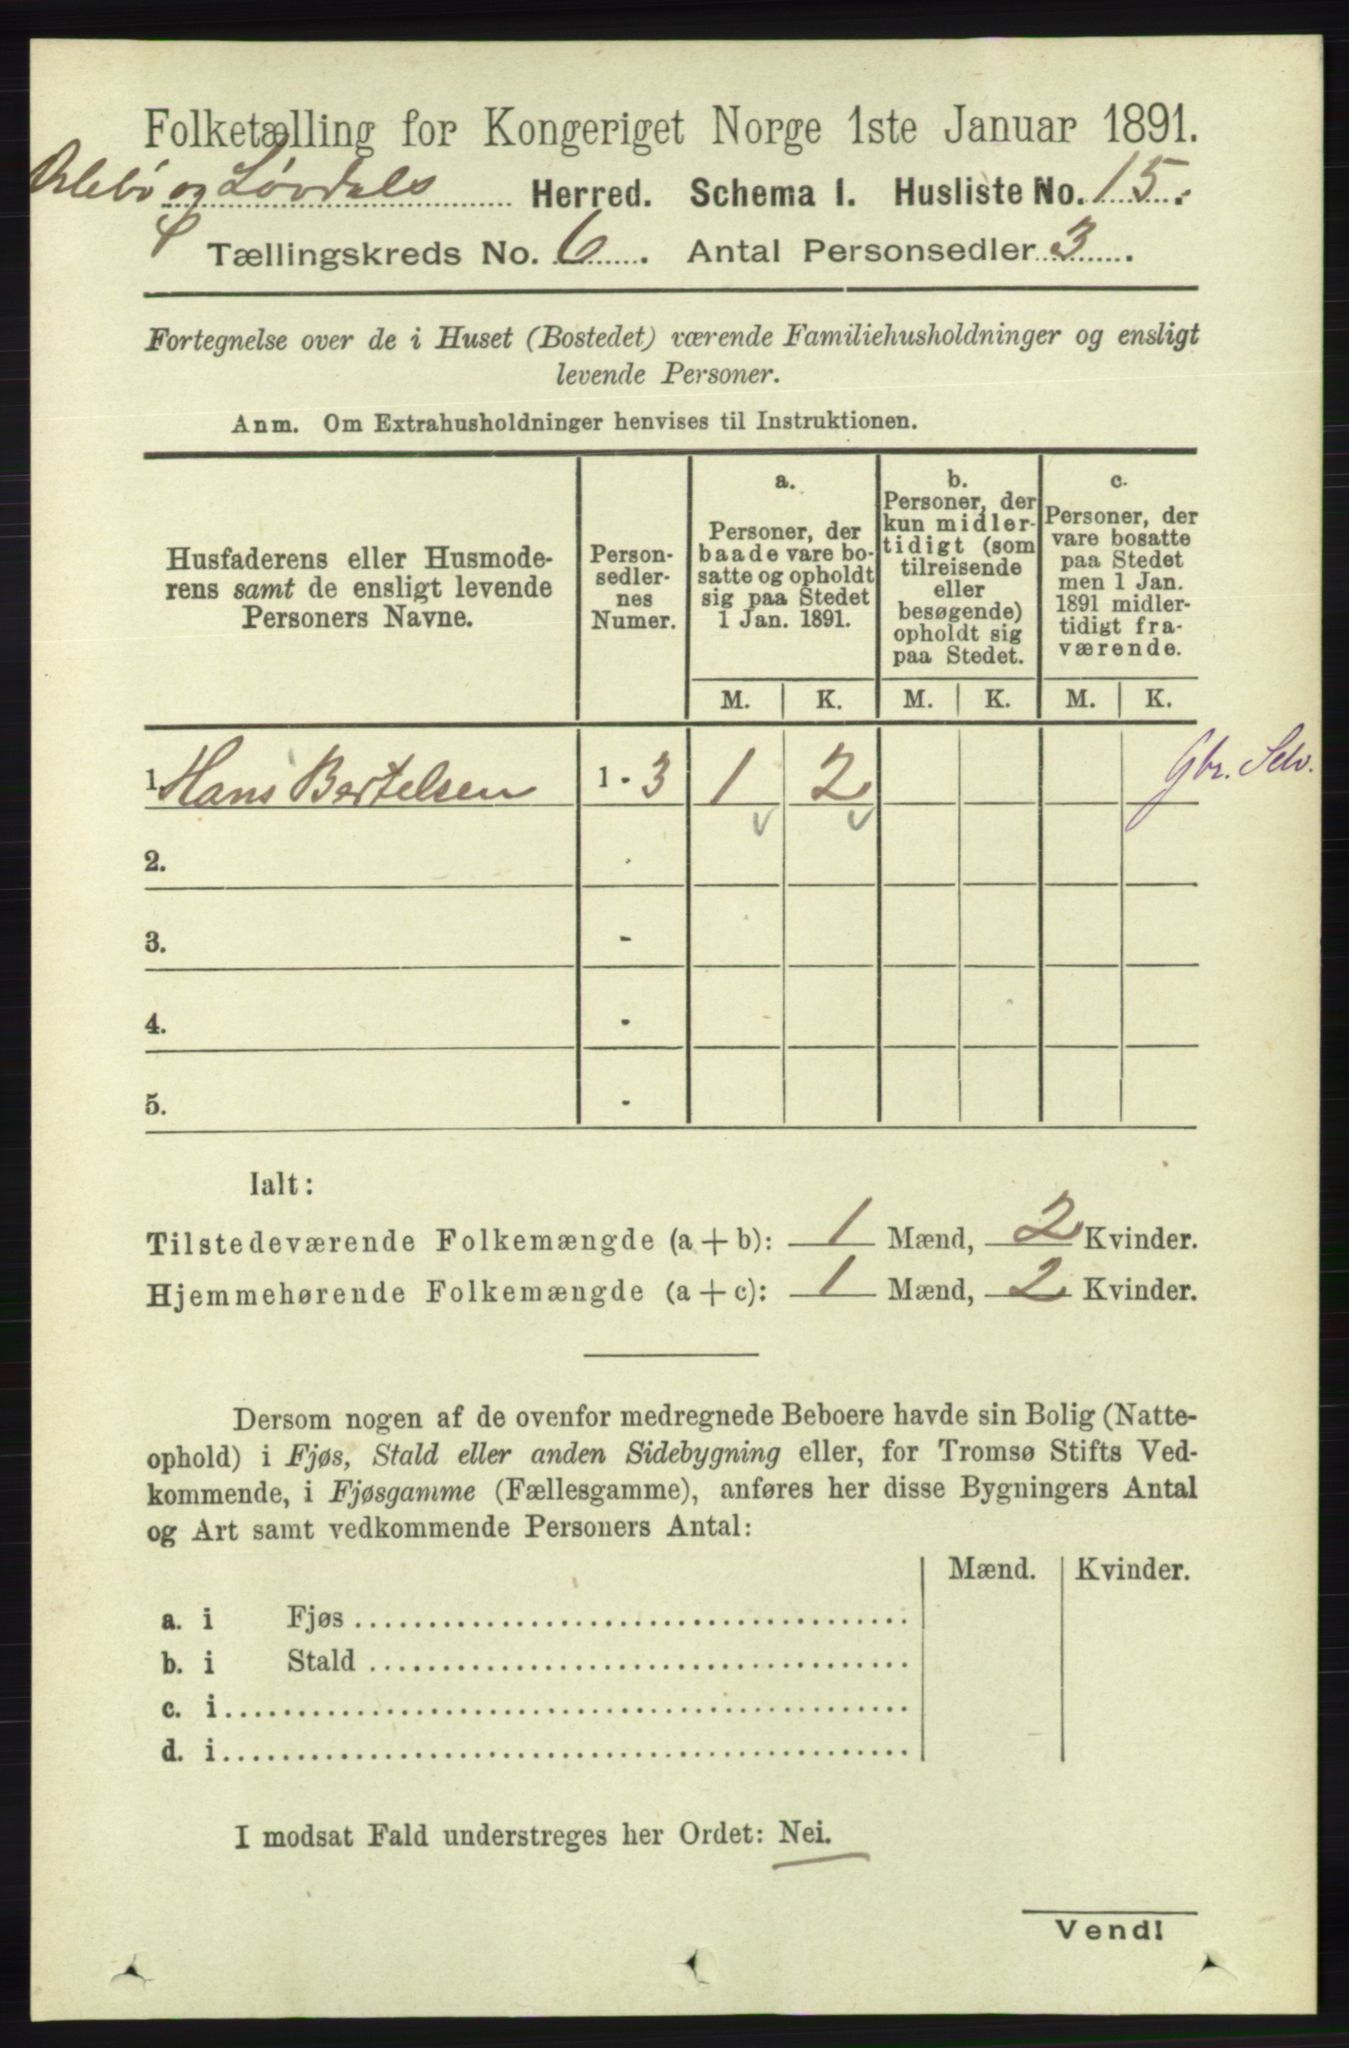 Folketælling for Kongeriget Norge 1ste Januar 1891.
Øslebø og Løvdals Herred. Schema I. Husliste No. 15.
Tællingskreds No. 6. Antal Personsedler 3.
Fortegnelse over de i Huset (Bostedet) værende Familiehusholdninger og ensligt
levende Personer.
Anm. Om Extrahusholdninger henvises til Instruktionen.
Husfaderens eller Husmode-
rens samt de ensligt levende
Personers Navne.
Person-
sedler-
nes
Numer.
a.
Personer, der
baade vare bo-
satte og opholdt
sig paa Stedet
1 Jan. 1891.
b.
Personer, der
kun midler-
tidigt (som
tilreisende
eller
besøgende)
opholdt sig
paa Stedet.
c.
Personer, der
vare bosatte
paa Stedet
men 1 Jan.
1891 midler-
tidigt fra-
værende.
M. K. M. K. M. K.
1. Hans Bertelsen 1 - 3 1 2 Gbr. Selv.
2. -
3. -
4. -
5. -
Ialt:
Tilstedeværende Folkemængde (a + b): 1 Mænd, 2 Kvinder.
Hjemmehørende Folkemængde (a + c): 1 Mænd, 2 Kvinder.
Dersom nogen af de ovenfor medregnede Beboere havde sin Bolig (Natte-
ophold) i Fjøs, Stald eller anden Sidebygning eller, for Tromsø Stifts Ved-
kommende, i Fjøsgamme (Fællesgamme), anføres her disse Bygningers Antal
og Art samt vedkommende Personers Antal:
Mænd. Kvinder.
a. i Fjøs
b. i Stald
c. i
d. i
I modsat Fald understreges her Ordet: Nei.
Vend!